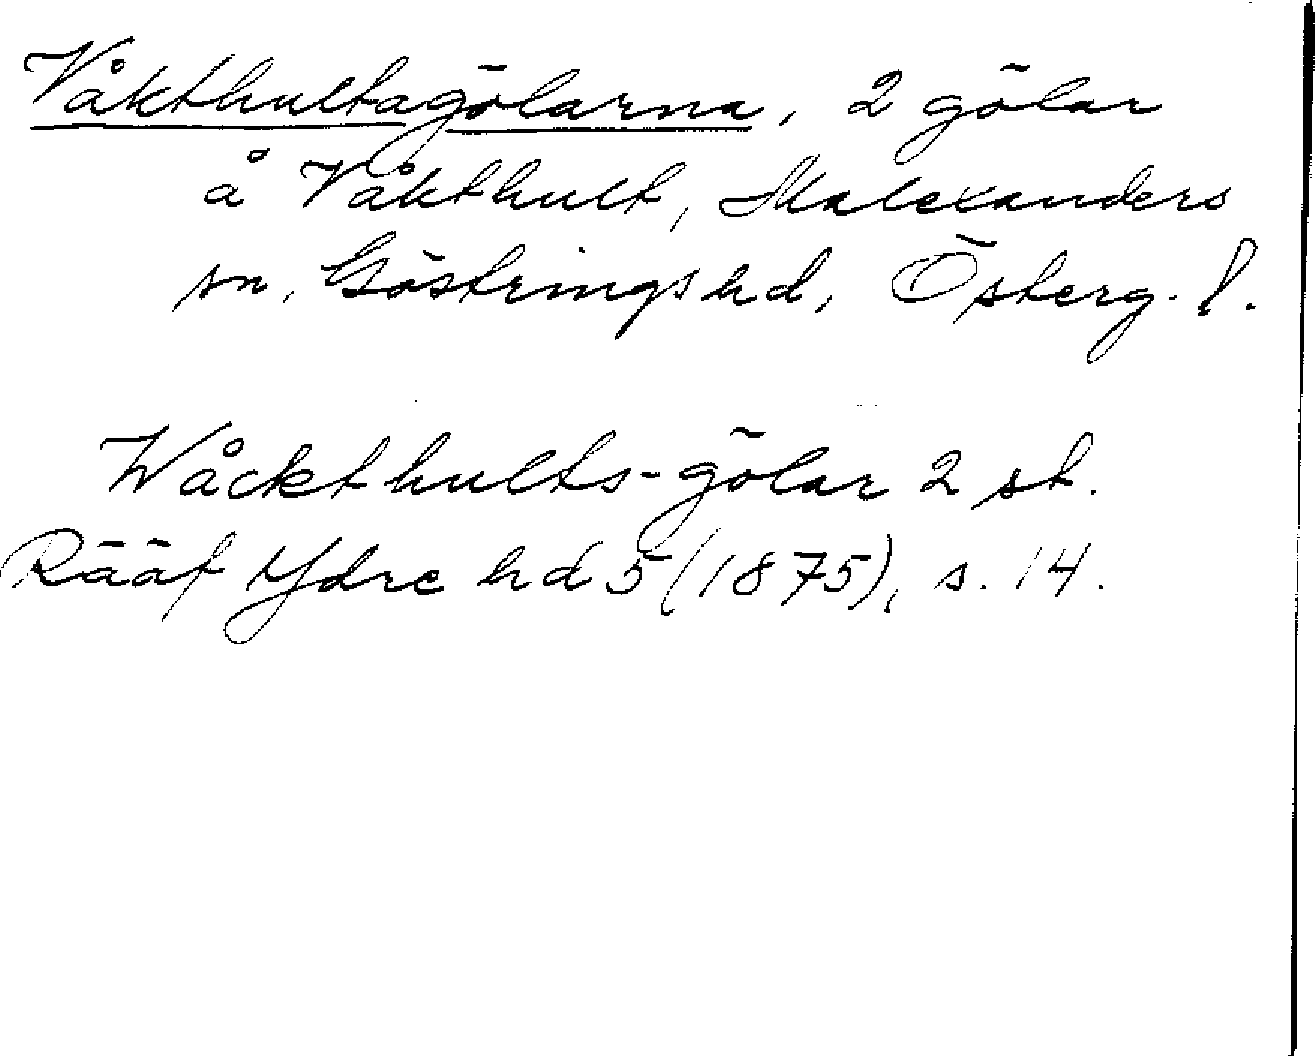 Våkthultagölarna, 2 gölar
å Våkthult, Malexanders
sn, Göstrings hd, Österg. l.
Wåckthults-gölar 2 st.
Rääf Ydre hd 5 (1875), s. 14.